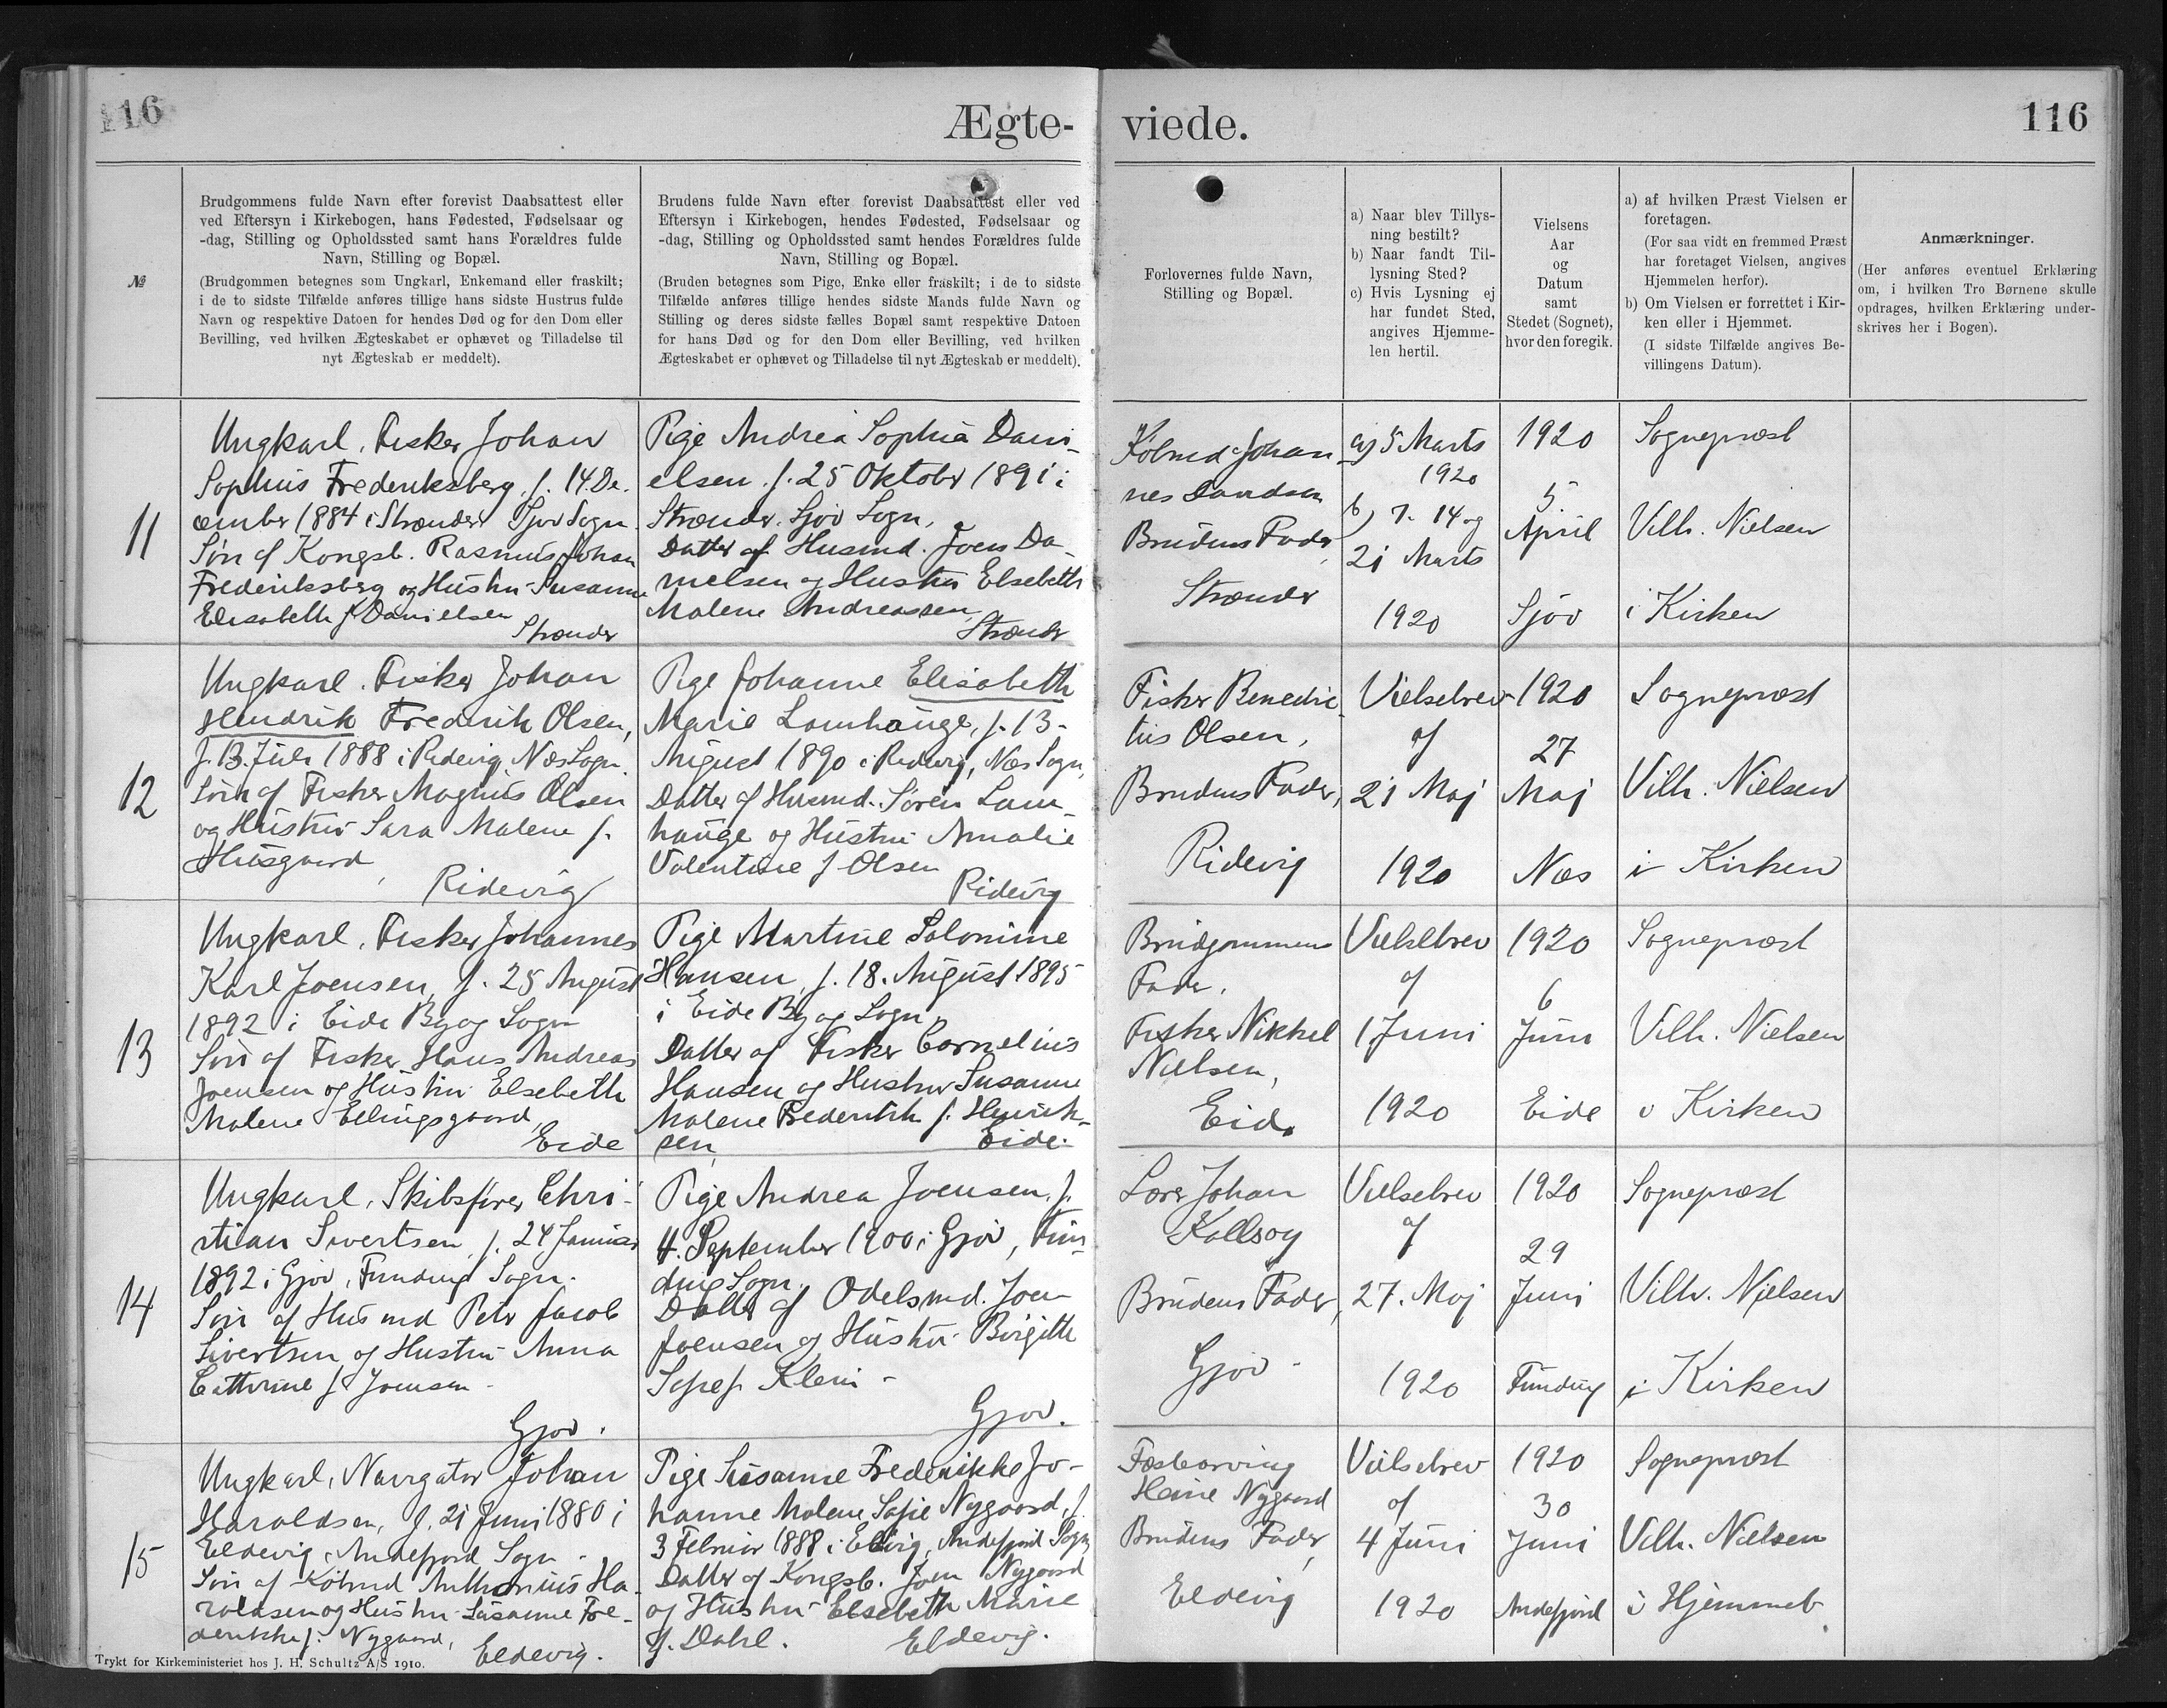 116
Ægte-
viede.
116
№
Brudgommens fulde Navn efter forevist Daabsattest eller
ved Eftersyn i Kirkebogen, hans Fødested, Fødselsaar og
-dag, Stilling og Opholdssted samt hans Forældres fulde
Navn, Stilling og Bopæl.
(Brudgommen betegnes som Ungkarl, Enkemand eller fraskilt;
i de to sidste Tilfælde anføres tillige hans sidste Hustrus fulde
Navn og respektive Datoen for hendes Død og for den Dom eller
Bevilling, ved hvilken Ægteskabet er ophævet og Tilladelse til
nyt Ægteskab er meddelt).
Brudens fulde Navn efter forevist Daabsattest eller ved
Eftersyn i Kirkebogen, hendes Fødested, Fødselsaar og
-dag, Stilling og Opholdssted samt hendes Forældres fulde
Navn, Stilling og Bopæl.
(Bruden betegnes som Pige, Enke eller fraskilt; i de to sidste
Tilfælde anføres tillige hendes sidste Mands fulde Navn og
Stilling og deres sidste fælles Bopæl samt respektive Datoen
for hans Død og for den Dom eller Bevilling, ved hvilken
Ægteskabet er ophævet og Tilladelse til nyt Ægteskab er meddelt).
Forlovernes fulde Navn,
Stilling og Bopæl.
a) Naar blev Tillys-
ning bestilt?
b) Naar fandt Til-
lysning Sted?
c) Hvis Lysning ej
har fundet Sted,
angives Hjemme-
len hertil.
Vielsens
Aar
og
Datum
samt
Stedet (Sognet),
hvor den foregik.
a) af hvilken Præst Vielsen er
foretagen.
(For saa vidt en fremmed Præst
har foretaget Vielsen, angives
Hjemmelen herfor).
b) Om Vielsen er forrettet i Kir-
ken eller i Hjemmet.
(I sidste Tilfælde angives Be-
villingens Datum).
Anmærkninger.
(Her anføres eventuel Erklæring
om, i hvilken Tro Børnene skulle
opdrages, hvilken Erklæring under-
skrives her i Bogen).
11
Ungkarl, Fisker Johan
Sophus Frederiksberg, f. 14. De-
cember 1884 i Strænder Sjov Sogn
Søn af Kongsb. Rasmus Johan
Frederiksberg og Hustru Susanne
Elisabeth f Danielsen
Strænder
Pige Andrea Sophia Dani-
elsen f. 25 Oktober 1891 i
Strænder, Sjov Sogn,
Datter af Husmd. Joen Da-
nielsen og Hustru Elsebeth
Malene Andreassen,
Strænder
Købmd Johan-
nes Davidsen
Brudens Fader,
Strænder
a) 5 Marts
1920
b) 7. 14 og
21 Marts
1920
1920
5
April
Sjov
Sognepræst
Vilh. Nielsen
i Kirken
12
Ungkarl, Fisker Johan
Hendrik Frederik Olsen,
f. 13. Juli 1888 i Ridevig, Næs Sogn.
Søn af Fisker Magnus Olsen
og Hustru Sara Malene f.
Husgaard,
Ridevig
Pige Johanne Elisabeth
Marie Lamhauge, f. 13
August 1890 i Ridevig, Næs Sogn,
Datter af Husmd. Søren Lam-
hauge og Hustru Amalie
Valentine f Olsen
Ridevig
Fisker Benedic-
tus Olsen,
Brudens Fader,
Ridevig
Vielsebrev
af
21 Maj
1920
1920
27
Maj
Næs
Sognepræst
Vilh. Nielsen
i Kirken
13
Ungkarl, Fisker Johannes
Karl Joensen, f. 25 August
1892 i Eide By og Sogn
Søn af Fisker Hans Andreas
Joensen og Hustru Elsebeth
Malene Ellingsgaard,
Eide
Pige Martine Salomine
Hansen, f. 18. August 1895
i Eide By og Sogn,
Datter af Fisker Cornelius
Hansen og Hustru Susanne
Malene Frederikke f. Henrik-
sen,
Eide.
Brudgommens
Fader,
Fisker Nikkel
Nielsen,
Eide
Vielsebrev
af
1 Juni
1920
1920
6
Juni
Eide
Sognepræst
Vilh. Nielsen
i Kirken
14
Ungkarl, Skibsfører Chri-
stian Sivertsen, f. 24 Januar
1892 i Gjov, Funding Sogn.
Søn af Husmd Peter Jacob
Sivertsen og Hustru Anna
Cathrine f. Joensen
Gjov.
Pige Andrea Joensen, f.
4. September 1900 i Gjov, Fun-
ding Sogn.
Datter af Odelsmd. Joen
Joensen og Hustru Birgitte
Sofie f. Klein
Gjov.
Lærer Johan
Kallsoy
Brudens Fader,
Gjov
Vielsebrev
af
27. Maj
1920
1920
29
Juni
Funding
Sognepræst
Vilh. Nielsen
i Kirken
15
Ungkarl, Navigatør Johan
Haraldsen, f. 21 Juni 1880 i
Eldevig, Andefjord Sogn
Søn af Købmd Anthonius Ha-
raldsen og Hustru Susanne Fre-
derikke f. Nygaard,
Eldevig.
Pige Susanne Frederikke Jo-
hanne Malene Sofie Nygaard, f.
3 Februar 1888 i Eldevig, Andefjord Sogn
Datter af Kongsb. Joen Nygaard
og Hustru Elsebeth Marie
f. Dahl.
Eldevig.
Heine Nygaard
Brudens Fader,
Eldevig
Vielsebrev
af
4 Juni
1920
1920
30
Juni
Andefjord
Sognepræst
Vilh. Nielsen
i Hjemmet
Trykt for Kirkeministeriet hos J. H. Schultz A/S 1910.